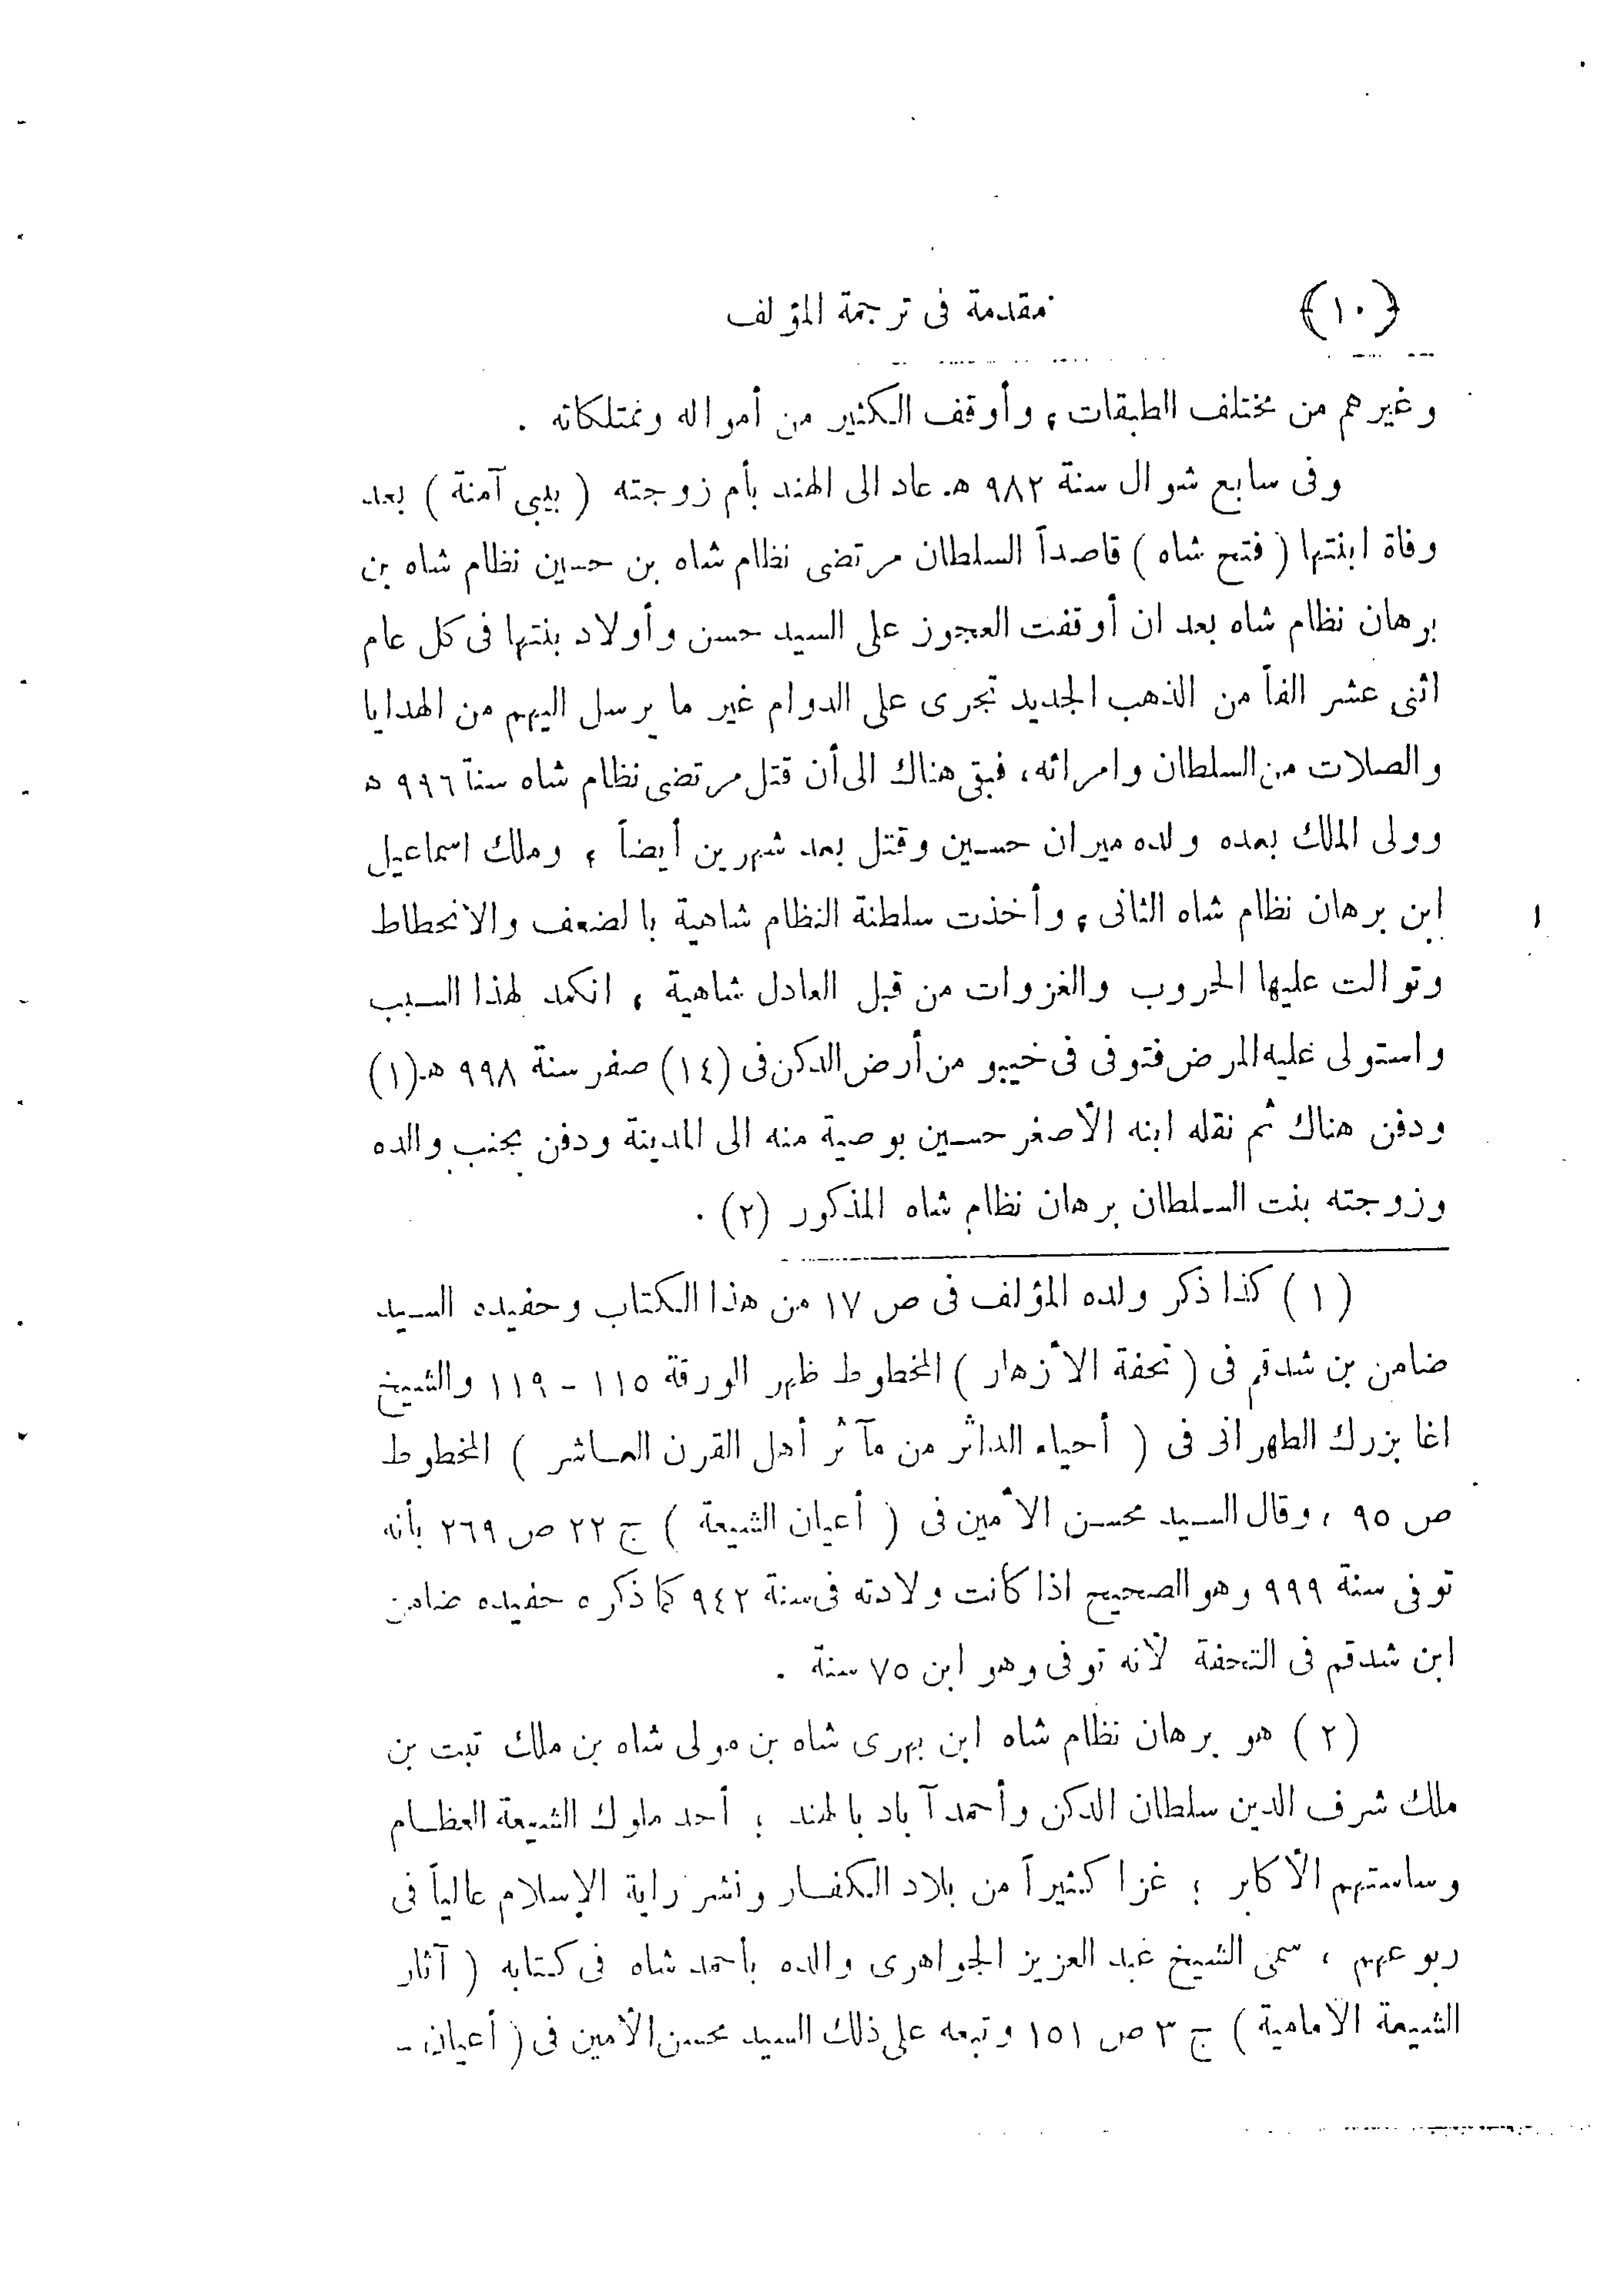 (١٠) مقدمة فى ترجمة المؤلف
وغيرهم من مختلف الطبقات، وأوقف الكثير من أمواله وممتلكاته .
وفى سابع شوال سنة ٩٨٢ هـ عاد الى الهند بأم زوجته ( بيبي آمنة ) بعد
وفاة ابنتها ( فتح شاه ) قاصداً السلطان مرتضى نظام شاه بن حسين نظام شاه بن
برهان نظام شاه بعد ان أوقفت العجوز على السيد حسن وأولاد بنتها فى كل عام
اثنى عشر الفاً من الذهب الجديد تجرى على الدوام غير ما يرسل اليهم من الهدايا
والصلات من السلطان وامرائه، فبقى هناك الى أن قتل مرتضى نظام شاه سنة ٩٩٦ ه
وولى الملك بعده ولده ميران حسين وقتل بعد شهرين أيضاً ، وملك اسماعيل
ابن برهان نظام شاه الثانى، وأخذت سلطنة النظام شاهية بالضعف والانحطاط
وتوالت عليها الحروب والغزوات من قبل العادل شاهية ، انكمد لهذا السبب
واستولى عليه المرض فتوفى فى خيبو من أرض الدكن فى (١٤) صفر سنة ٩٩٨ هـ(١)
ودفن هناك ثم نقله ابنه الأصغر حسين بوصية منه الى المدينة ودفن بجنب والده
وزوجته بنت السلطان برهان نظام شاه المذكور (٢) .
(١) كذا ذكر ولده المؤلف فى ص ١٧ من هذا الكتاب وحفيده السيد
ضامن بن شدقم فى ( تحفة الأزهار ) المخطوط ظهر الورقة ١١٥ - ١١٩ والشيخ
اغا بزرك الطهرانى فى ( أحياء الداثر من مآثر أهل القرن العاشر ) المخطوط
ص ٩٥ ، وقال السيد محسن الأمين فى ( أعيان الشيعة ) ج ٢٢ ص ٢٦٩ بأنه
توفى سنة ٩٩٩ وهو الصحيح اذا كانت ولادته فى سنة ٩٤٢ كما ذكره حفيده ضامن
ابن شدقم فى التحفة لأنه توفى وهو ابن ٧٥ سنة .
(٢) هو برهان نظام شاه ابن بهرى شاه بن مولى شاه بن ملك تبت بن
ملك شرف الدين سلطان الدكن وأحمد آباد بالهند ؛ أحد ملوك الشيعة العظام
وساستهم الأكابر ؛ غزا كثيراً من بلاد الكفار ونشر راية الإسلام عالياً فى
ربوعهم ، سمى الشيخ عبد العزيز الجواهرى والده بأحمد شاه فى كتابه ( آثار
الشيعة الأمامية ) ج ٣ ص ١٥١ وتبعه على ذلك السيد محسن الأمين فى ( أعيان -